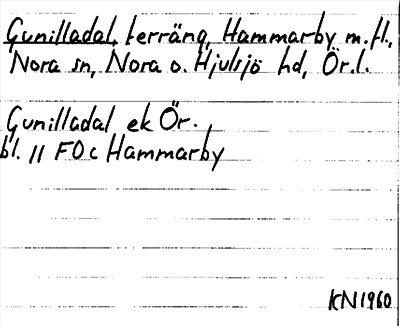 Gunilladal, terräng, Hammarby m.fl.,
Nora sn, Nora o. Hjulsjö hd, Ör.l.
Gunilladal ek Ör.
bl. 11 F0c Hammarby
KN1960